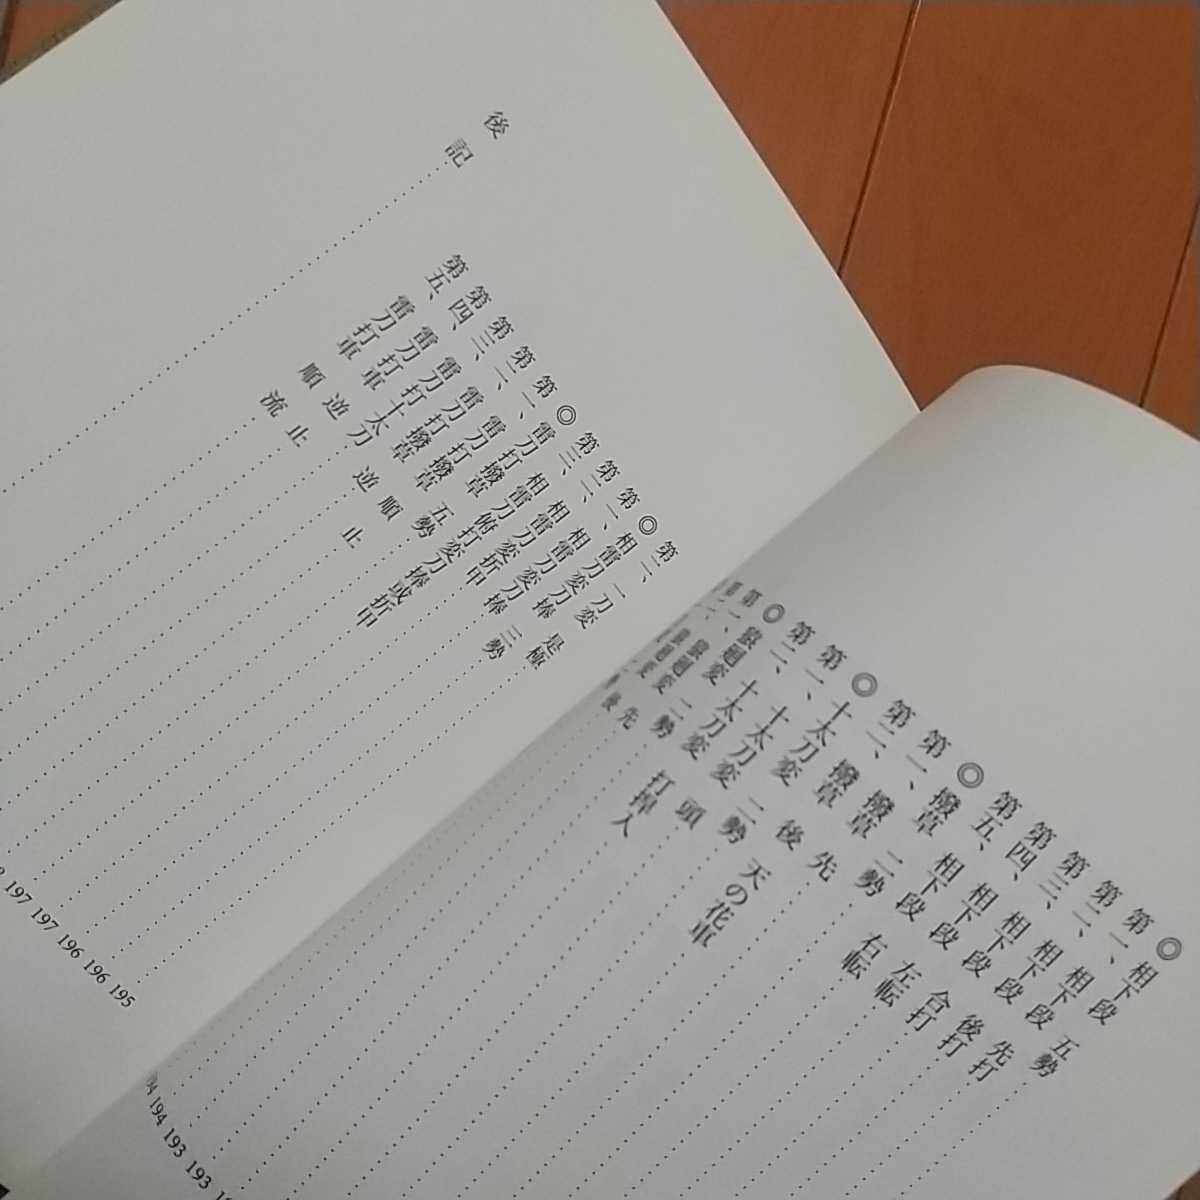 ◎相下段　五勢
第一、相下段　先打
第二、相下段　後打
第三、相下段　合打
第四、相下段　左転
第五、相下段　右転
◎撥草　二勢
第一、撥草　先
第二、撥草　後
◎十太刀変　二勢　天の花車
第一、十太刀変　頭
第二、十太刀変　打捍入
廻変　二勢
第一、
廻変　先
193
193
194
第二、
◎相雷刀変刀捧　三勢
第一、相雷刀変刀捧　是極
第二、相雷刀変刀捧
第三、
◎雷刀打撥草　五勢
第一、雷刀打撥草　俯打変刀捧或折甲
第二、雷刀打撥草　順止
第三、雷刀打撥草　逆
第四、雷刀打車十太刀　逆止
第五、雷刀打車　順流
後記
195
196
196
197
197